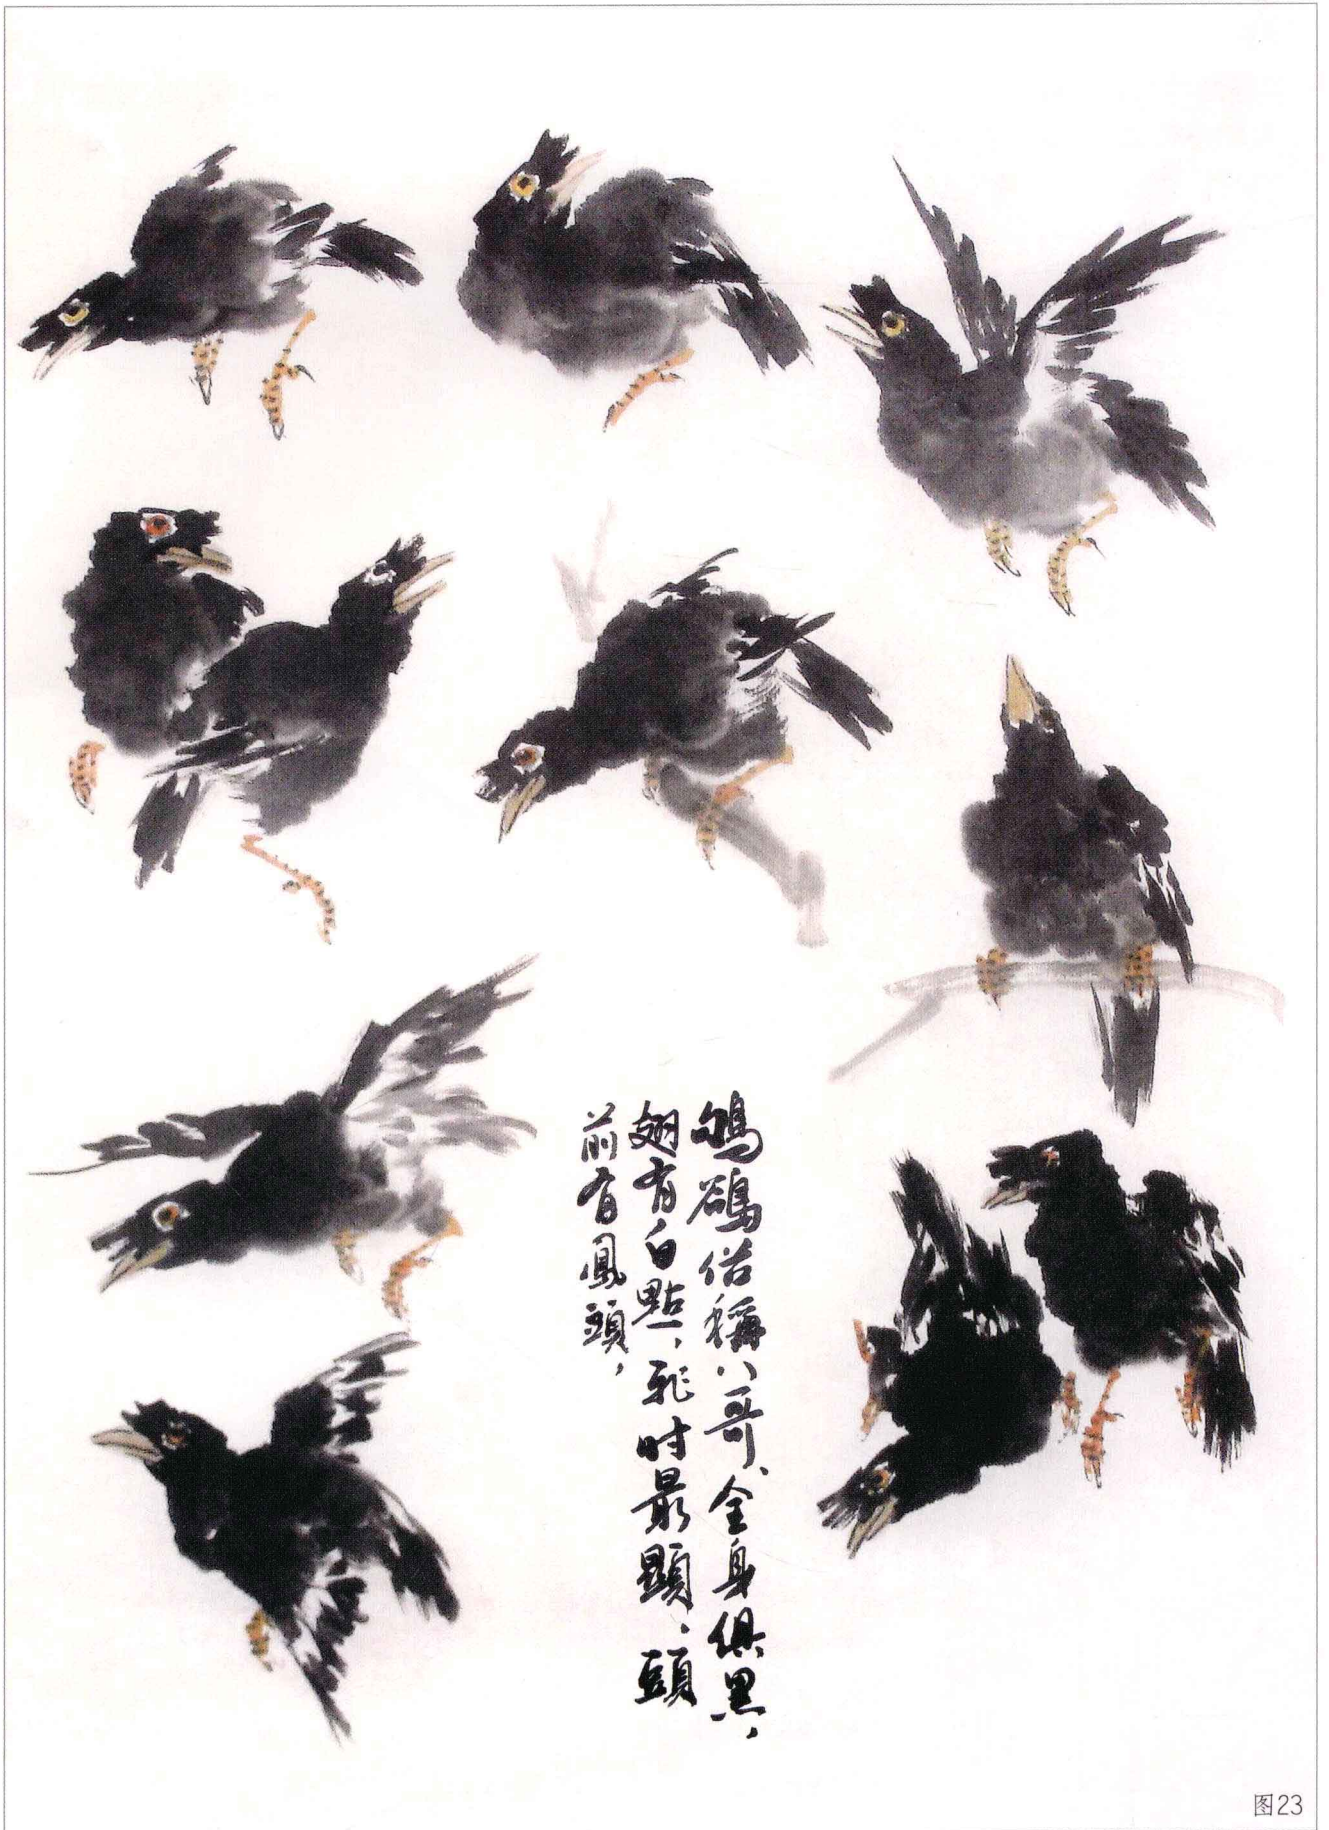 鴝鵒俗稱八哥、全身俱黑，
翅有白點，飛时最顯、頭
前有鳳頭，
图23